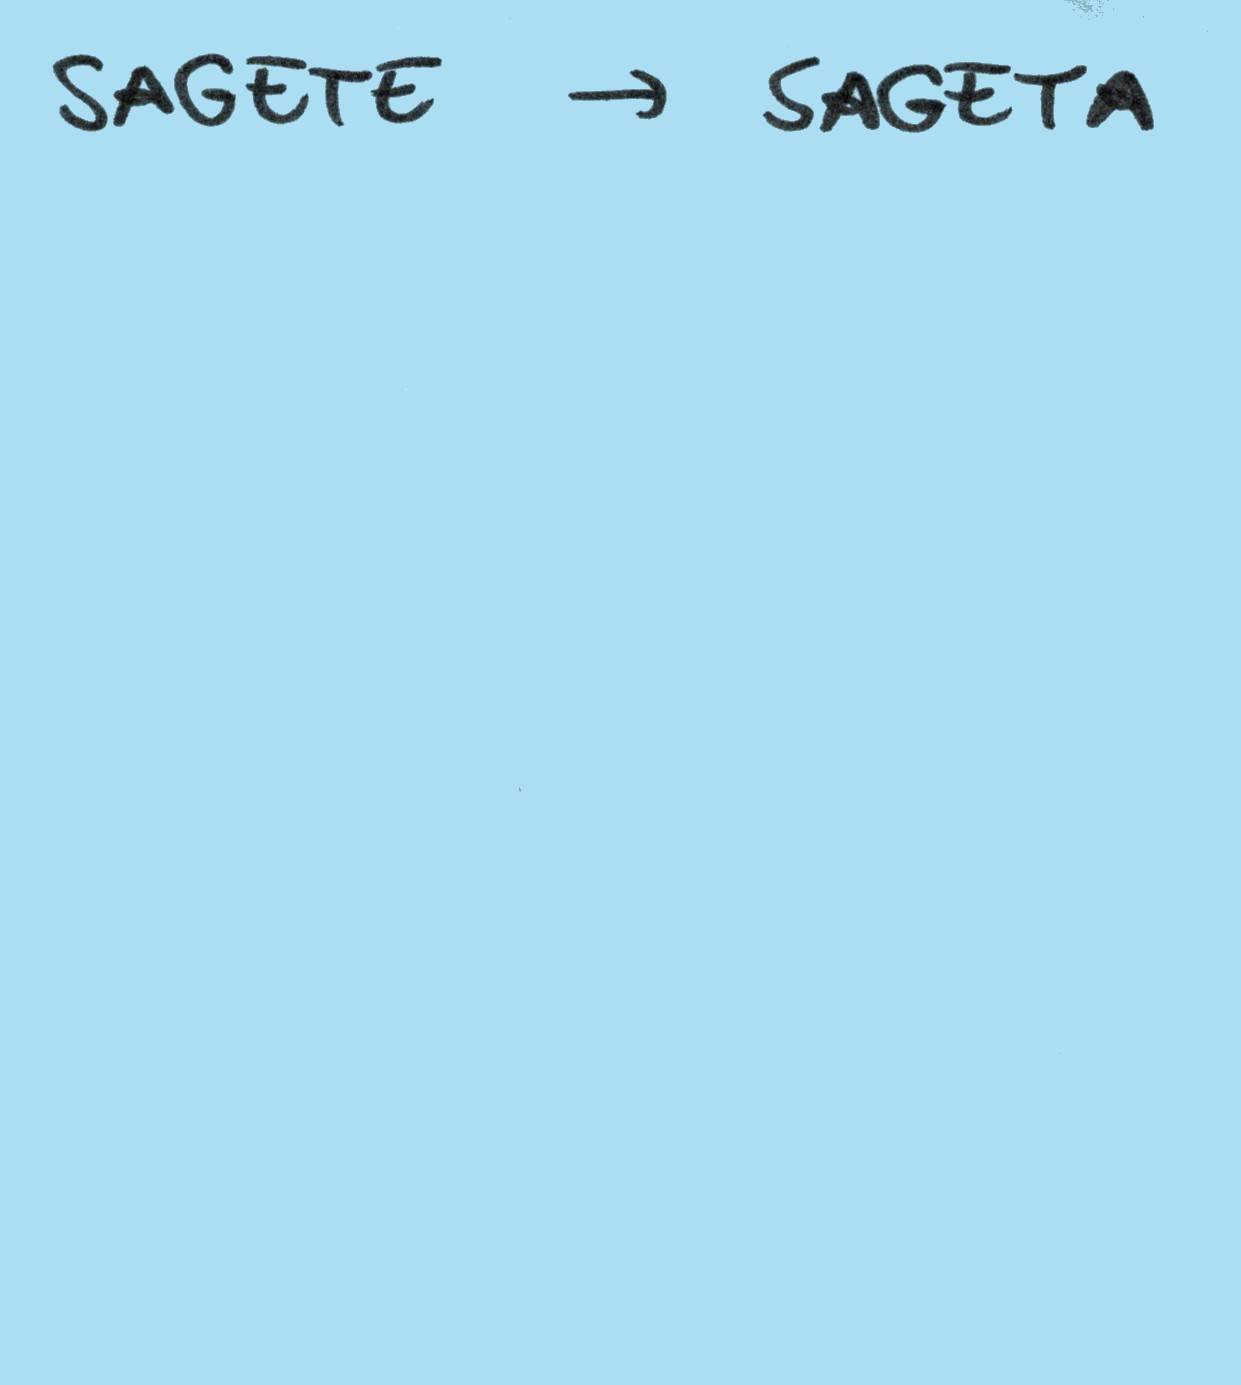 SAGETE → SAGETA